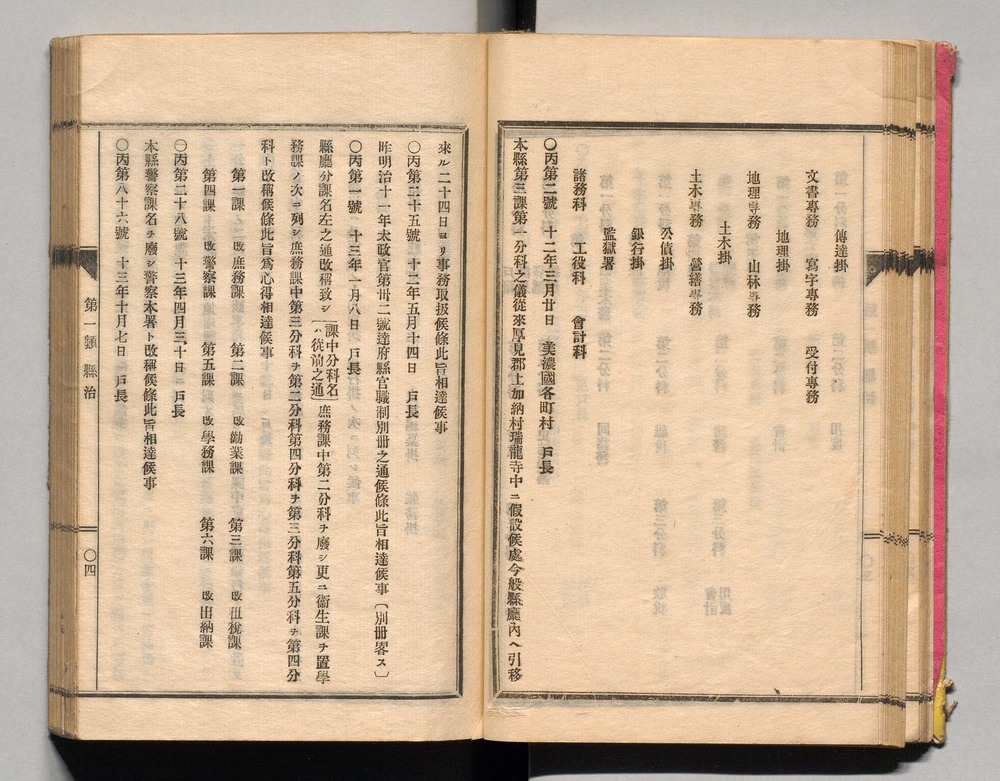 傳達掛
文書專務 寫字專務 受付專務
地理掛
地理專務 山林專務
土木掛
土木專務 營繕專務
公債掛
銀行掛
監獄署
諸務科 工役科 會計科
〇丙第二號 十二年三月廿日 美濃國各町村 戸長
本縣第三課第一分科之儀從來厚見郡上加納村瑞龍寺中ニ假設候處今般縣廳內ヘ引移
來ル二十四日ヨリ事務取扱候條此旨相達候事
〇丙第二十五號 十二年五月十四日 戸長
昨明治十一年太政官第卅二號達府縣官職制別冊之通候條此旨相達候事〔別冊畧ス〕
〇丙第一號 十三年一月八日 戸長
縣廳分課名左之通改稱致シ〔課中分科名ハ從前之通〕庶務課中第二分科ヲ廢シ更ニ衞生課ヲ置學
務課ノ次ニ列シ庶務課中第三分科ヲ第二分科第四分科ヲ第三分科第五分科ヲ第四分
科ト改稱候條此旨爲心得相達候事
第一課 改庶務課 第二課 改勸業課 第三課 改租稅課
第四課 改警察課 第五課 改學務課 第六課 改出納課
〇丙第二十八號 十三年四月三十日 戸長
本縣警察課名ヲ廢シ警察本署ト改稱候條此旨相達候事
〇丙第八十六號 十三年十月七日 戸長
第一類 縣治
〇四